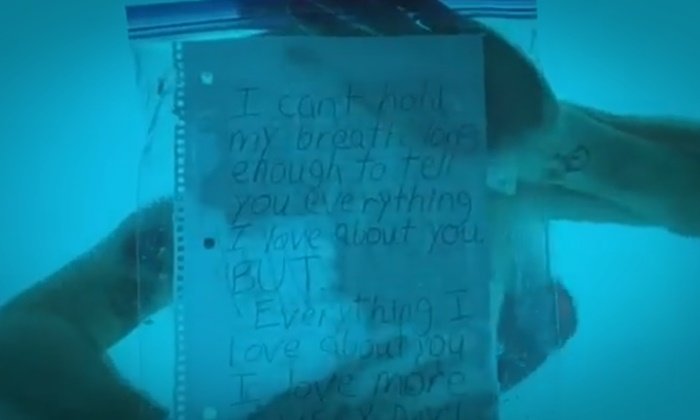 I can't hold
my breath long
enough to tell
you everything
I love about you.
BUT.
Everything I
love about you
I love more
EVERY DAY!